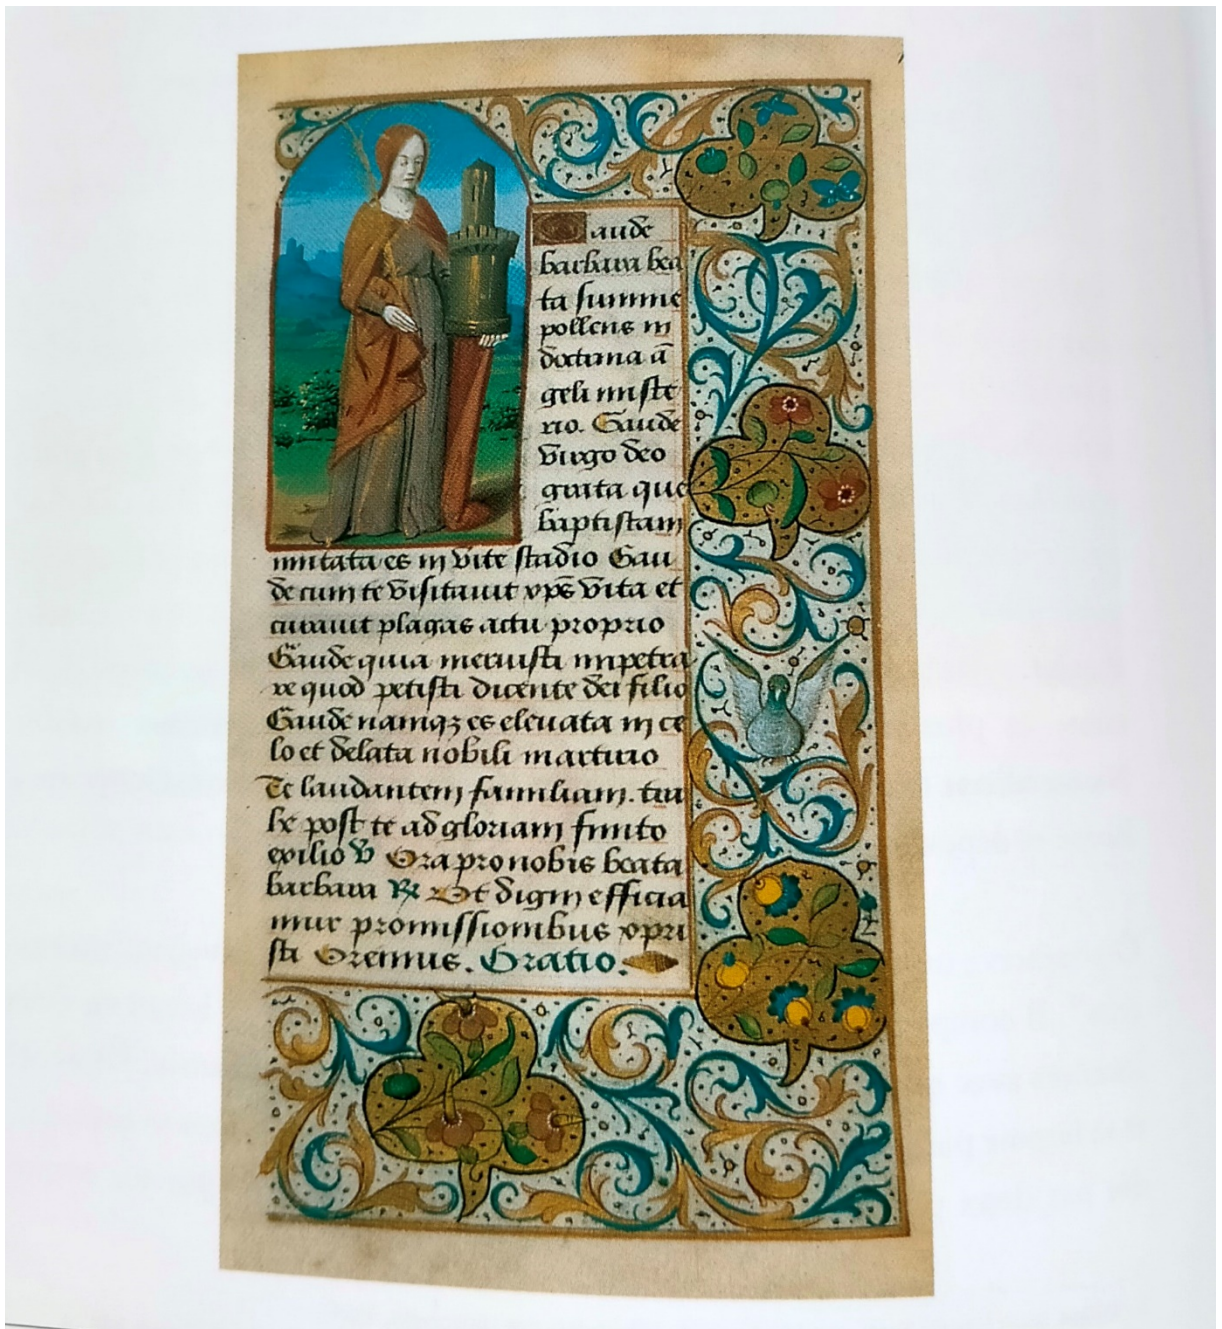 Gaude
barbara bea
ta summe
pollens in
doctrina ā
geli miste
rio. Gaude
virgo deo
grata que
baptistam
imitata es in vite stadio Gau
de cum te visitavit xp̄s vita et
curavit plagas actu proprio
Gaude quia meruisti impetra
re quod petisti dicente dei filio
Gaude namqꝫ es elevata in ce
lo et delata nobili martirio
Te laudantem familiam. tra
he post te ad gloriam finito
exilio ℣ Ora pro nobis beata
barbara ℟ Ut digni efficia
mur promissionibus xpri
sti Oremus. Oratio.